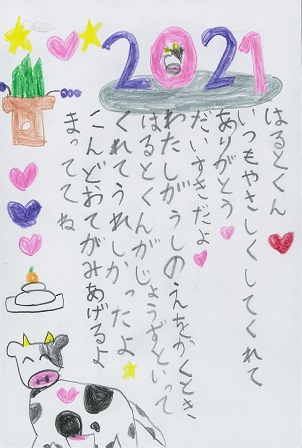 2021
はるとくん
いつもやさしくしてくれて
ありがとう
だいすきだよ
わたしがうしのえをかくとき
はるとくんがじょうずといって
くれてうれしかったよ
こんどおてがみあげるよ
まっててね